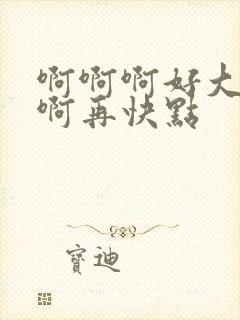 啊啊啊好大
啊再快點
寶迪